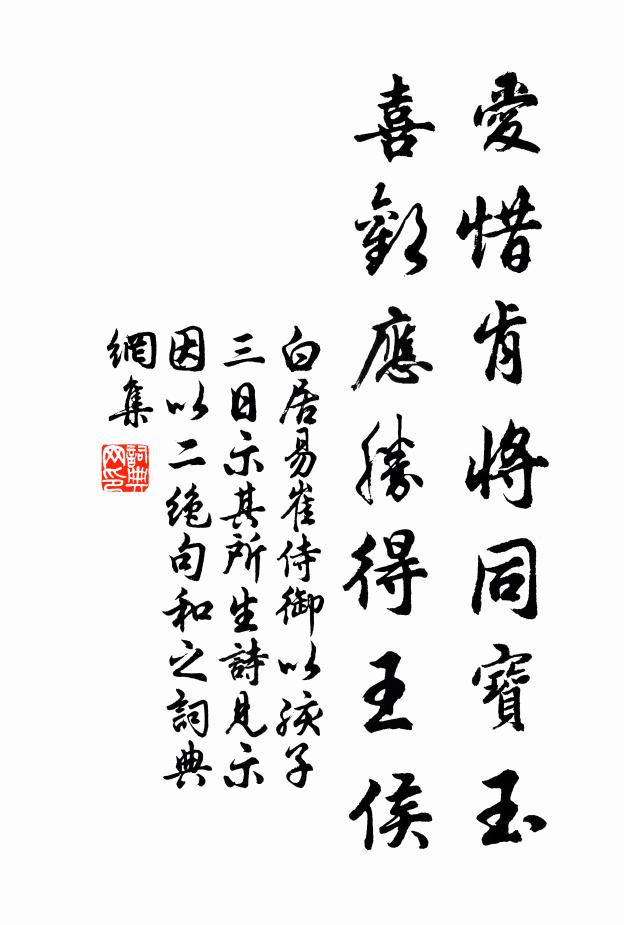 愛惜肯將同寶玉
喜歡應勝得王侯
白居易崔侍御以孩子
三日示其所生詩見示
因以二絕句和之詞典
網集
詞典
网印